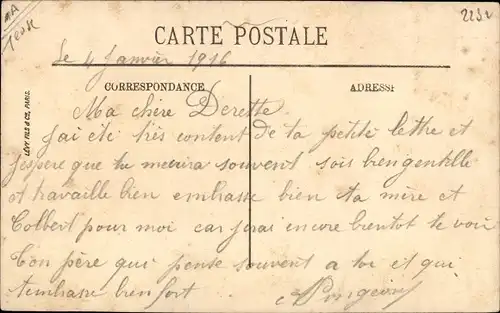 2232
CARTE POSTALE
Le 4 Janvier 1916
CORRESPONDANCE
ADRESSE
LÉVY FILS & CIE, PARIS.
Ma chère Derette
J'ai été très content de ta petite lettre et
j'espère que tu souvent sois bien gentille
et travaille bien embrasse bien ta mère et
Colbert pour moi car j'irai encore bientot te voir
Ton père qui pense souvent a toi et qui
t'embrasse bien fort